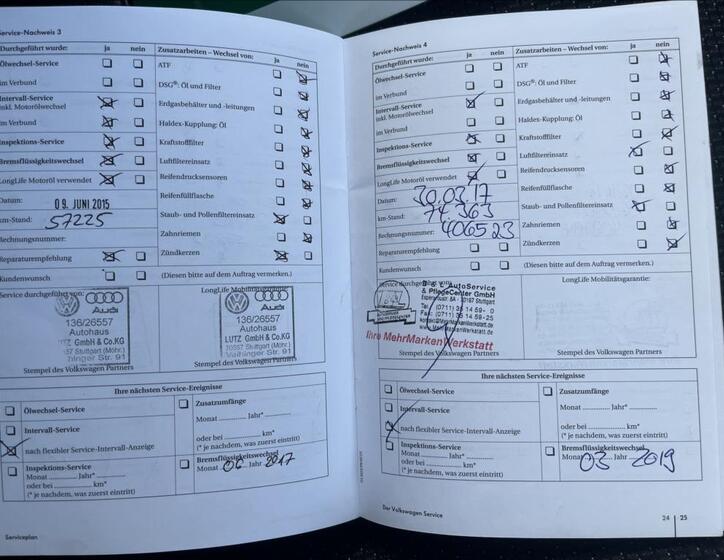 Service-Nachweis 3
Durchgeführt wurde: ja nein
Ölwechsel-Service
im Verbund
Intervall-Service
inkl. Motorölwechsel
im Verbund
Inspektions-Service
Bremsflüssigkeitswechsel
LongLife Motoröl verwendet
Datum: 09. JUNI 2015
km-Stand: 57225
Rechnungsnummer:
Reparaturempfehlung
Kundenwunsch
Zusatzarbeiten – Wechsel von: ja nein
ATF
DSG®: Öl und Filter
Erdgasbehälter und -leitungen
Haldex-Kupplung: Öl
Kraftstofffilter
Luftfiltereinsatz
Reifendrucksensoren
Reifenfüllflasche
Staub- und Pollenfiltereinsatz
Zahnriemen
Zündkerzen
(Diesen bitte auf dem Auftrag vermerken.)
Service durchgeführt von:
Audi
136/26557
Autohaus
LUTZ GmbH & Co.KG
Stuttgart (Möhr.)
Stempel des Volkswagen Partners
LongLife Mobilitätsgarantie:
Audi
136/26557
Autohaus
LUTZ GmbH & Co.KG
Stuttgart (Möhr.)
Vaihinger Str. 91
Stempel des Volkswagen Partners
Ihre nächsten Service-Ereignisse
Ölwechsel-Service
Intervall-Service
nach flexibler Service-Intervall-Anzeige
Inspektions-Service
Monat Jahr*
oder bei km*
(* je nachdem, was zuerst eintritt)
Zusatzumfänge
Monat Jahr*
oder bei km*
(* je nachdem, was zuerst eintritt)
Bremsflüssigkeitswechsel
Monat 06 Jahr 2017
Serviceplan
Service-Nachweis 4
Durchgeführt wurde: ja nein
Ölwechsel-Service
im Verbund
Intervall-Service
inkl. Motorölwechsel
im Verbund
Inspektions-Service
Bremsflüssigkeitswechsel
LongLife Motoröl verwendet
Datum: 30.03.17
km-Stand: 74 363
Rechnungsnummer: 406523
Reparaturempfehlung
Kundenwunsch
Zusatzarbeiten – Wechsel von: ja nein
ATF
DSG®: Öl und Filter
Erdgasbehälter und -leitungen
Haldex-Kupplung: Öl
Kraftstofffilter
Luftfiltereinsatz
Reifendrucksensoren
Reifenfüllflasche
Staub- und Pollenfiltereinsatz
Zahnriemen
Zündkerzen
(Diesen bitte auf dem Auftrag vermerken.)
Service durchgeführt von:
AutoService
& PflegeCenter GmbH
Ihre MehrMarkenWerkstatt
Stempel des Volkswagen Partners
LongLife Mobilitätsgarantie:
Stempel des Volkswagen Partners
Ihre nächsten Service-Ereignisse
Ölwechsel-Service
Intervall-Service
nach flexibler Service-Intervall-Anzeige
Inspektions-Service
Monat Jahr*
oder bei km*
(* je nachdem, was zuerst eintritt)
Zusatzumfänge
Monat Jahr*
oder bei km*
(* je nachdem, was zuerst eintritt)
Bremsflüssigkeitswechsel
Monat 03 Jahr 2019
Der Volkswagen Service
24 25